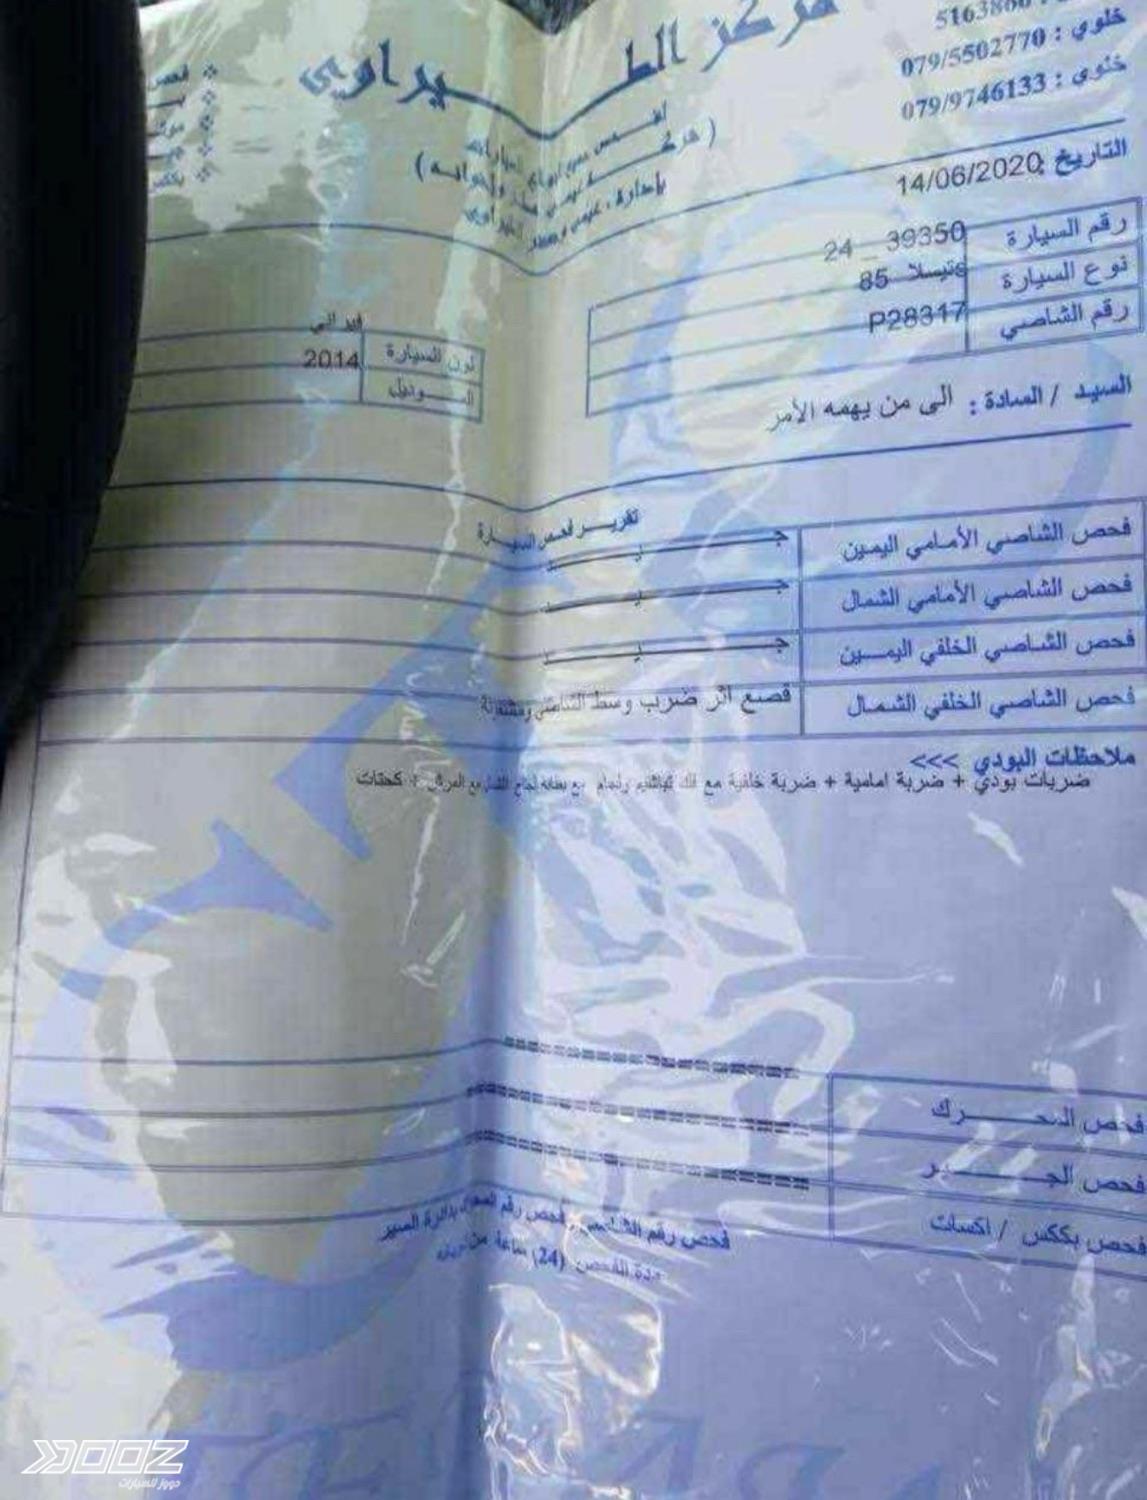 مركز الطيراوي
5163866
خلوي : 079/5502770
خلوي : 079/9746133
فحص
لفحص جميع أنواع السيارات
بإدارة : عيسى
التاريخ : 14/06/2020
رقم السيارة 39350 _ 24
نوع السيارة تيسلا 85
رقم الشاصي P28317
لون السيارة فيراني
الموديل 2014
السيد / السادة : الى من يهمه الأمر
تقرير فحص السيارة
فحص الشاصي الأمامي اليمين جيد
فحص الشاصي الأمامي الشمال جيد
فحص الشاصي الخلفي اليمين جيد
فحص الشاصي الخلفي الشمال قصع اثر ضرب وسط الشاصي ومشغولة
ملاحظات البودي >>>
ضربات بودي + ضربة امامية + ضربة خلفية مع فك + كحتات
فحص المحرك
فحص الجير
فحص بككس / اكسات
فحص رقم الشاصي , فحص رقم المحرك بدائرة السير
مدة الفحص (24) ساعة من
DOOZ
دووز للسيارات